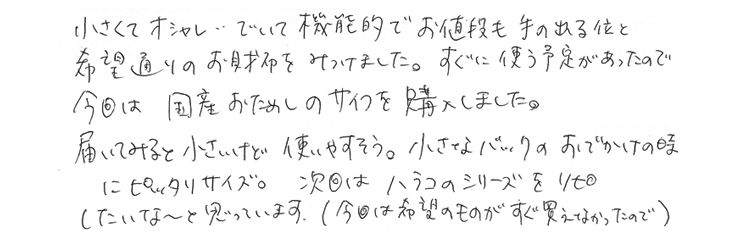 小さくてオシャレ‥でいて機能的でお値段も手の出る位と
希望通りのお財布をみつけました。すぐに使う予定があったので
今回は国産おためしのサイフを購入しました。
届いてみると小さいけど使いやすそう。小さなバックのおでかけの時
にピッタリサイズ。次回はハラコのシリーズをリピ
したいな〜と思っています.(今回は希望のものがすぐ買えなかったので)